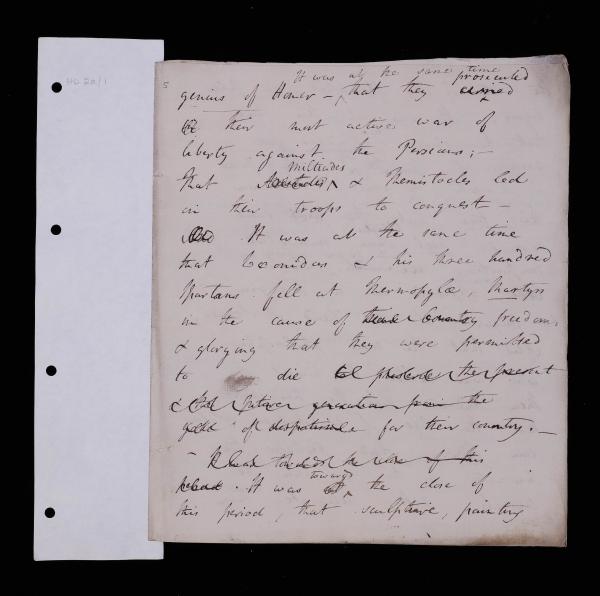 HD 20/1
5
It was at the same time
prosecuted
genius of Homer – that they carried
their most active war of
liberty against the Persians; –
Miltiades
that Aristides & Themistocles led
on their troops to conquest –
It was at the same time
that Leonidas & his three hundred
Spartans fell at Thermopylæ, Martyrs
in the cause of their Country freedom,
& glorying that they were permitted
to die to preserve the present
& future generation from the
yoke of despotism for their country. –
the close of this
period. It was towards the close of
this period, that sculpture, painting